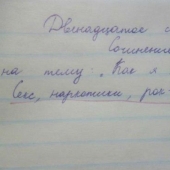 Двенадцатое
Сочинение
на тему: „Как я
Секс, наркотики, рок-